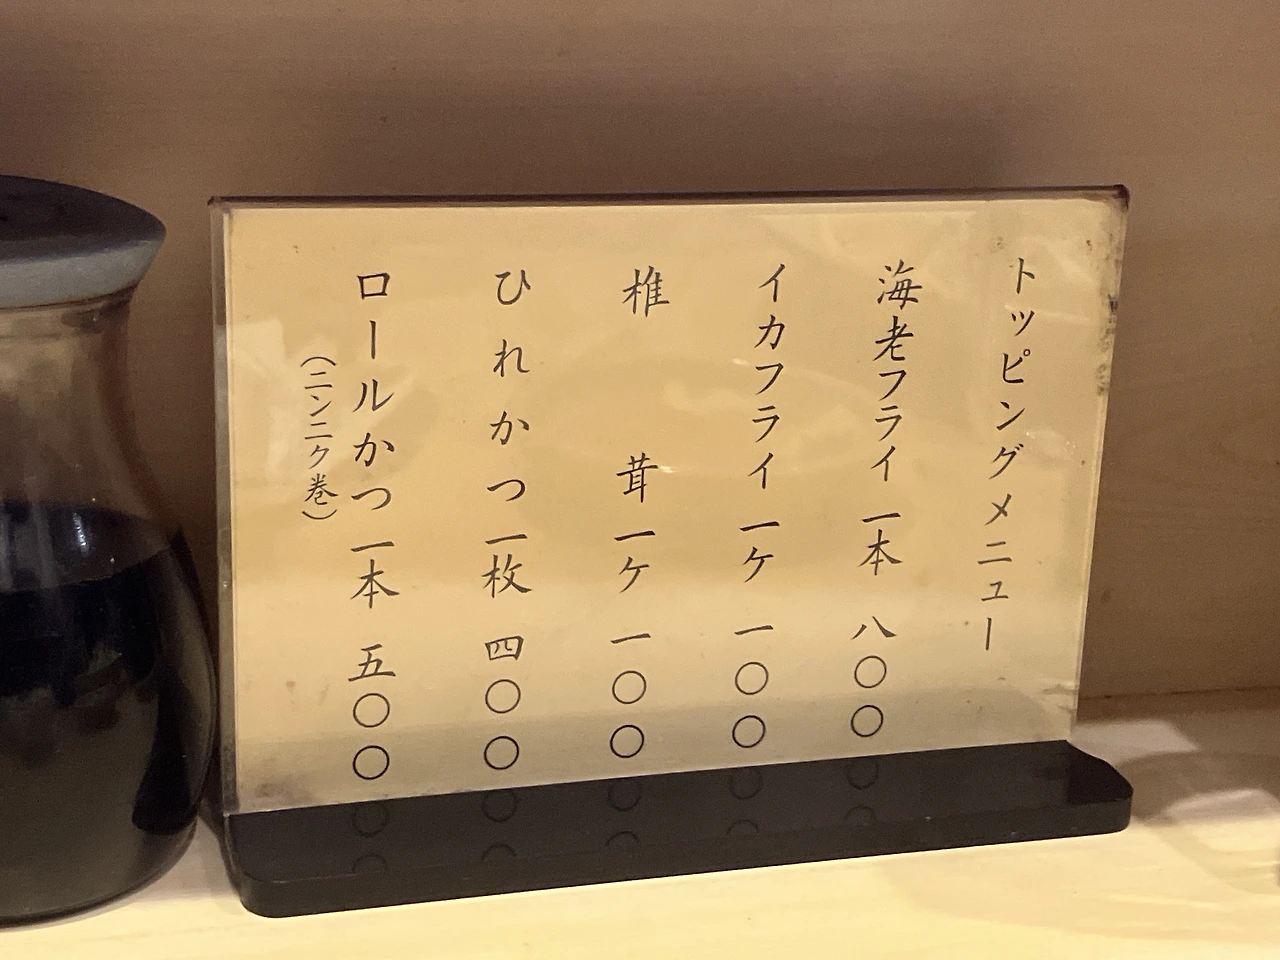 トッピングメニュー
海老フライ 一本 八〇〇
イカフライ 一ケ 一〇〇
椎茸 一ケ 一〇〇
ひれかつ 一枚 四〇〇
ロールかつ 一本 五〇〇
（ニンニク巻）